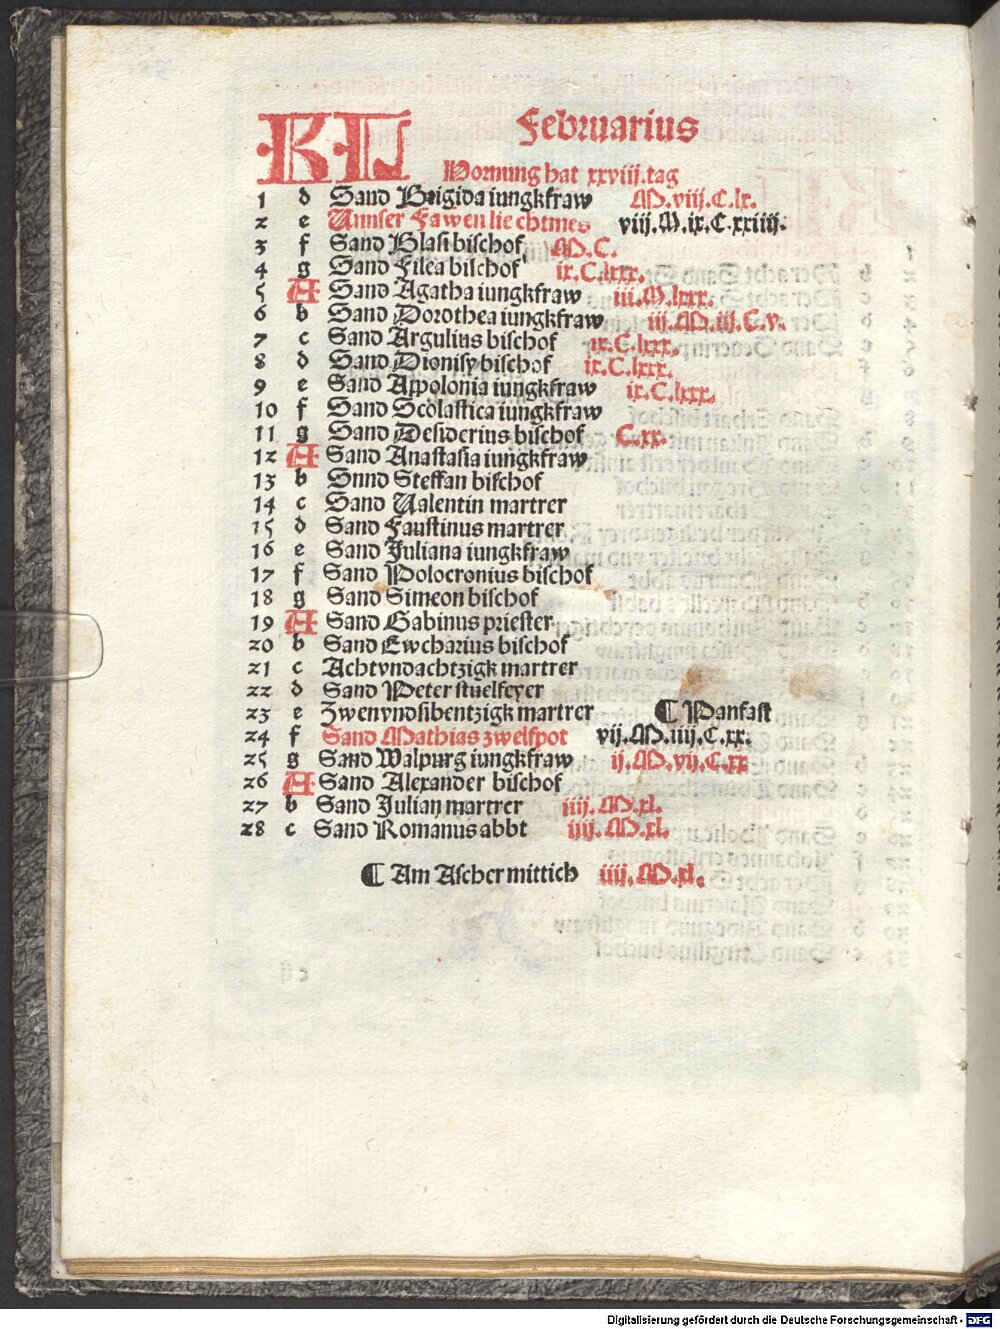 KL Februarius
Hornung hat xxviii.tag
1 d Sand Brigida iungkfraw M.viij.C.lx.
2 e Unnser Fawen liechtmes viij.M.ix.C.xxiiij.
3 f Sand Blasi bischof M.C.
4 g Sand Filea bischof ix.C.lxxx.
5 A Sand Agatha iungkfraw iii.M.lxxx.
6 b Sand Dorothea iungkfraw iij.M.iij.C.v.
7 c Sand Argulius bischof ix.C.lxxx.
8 d Sand Dionisy bischof ix.C.lxxx.
9 e Sand Appolonia iungkfraw ix.C.lxxx.
10 f Sand Scolastica iungkfraw
11 g Sand Desiderius bischof C.xx.
12 A Sand Anastasia iungkfraw
13 b Snnd Steffan bischof
14 c Sand Ualentin martrer
15 d Sand Faustinus martrer
16 e Sand Juliana iungkfraw
17 f Sand Polocronius bischof
18 g Sand Simeon bischof
19 A Sand Gabinus priester
20 b Sand Ewcharius bischof
21 c Achtvndachtzigk martrer
22 d Sand Peter stuelfeyer
23 e Zwenvndsibentzigk martrer ¶ Panfast
24 f Sand Mathias zwelfpot vij.M.iiij.C.xx.
25 g Sand Walpurg iungkfraw ij.M.vij.C.xx
26 A Sand Alexander bischof
27 b Sand Julian martrer iiij.M.xl.
28 c Sand Romanus abbt iiij.M.xl.
¶ Am Aschermittich iiij.M.xl.
Digitalisierung gefördert durch die Deutsche Forschungsgemeinschaft - DFG